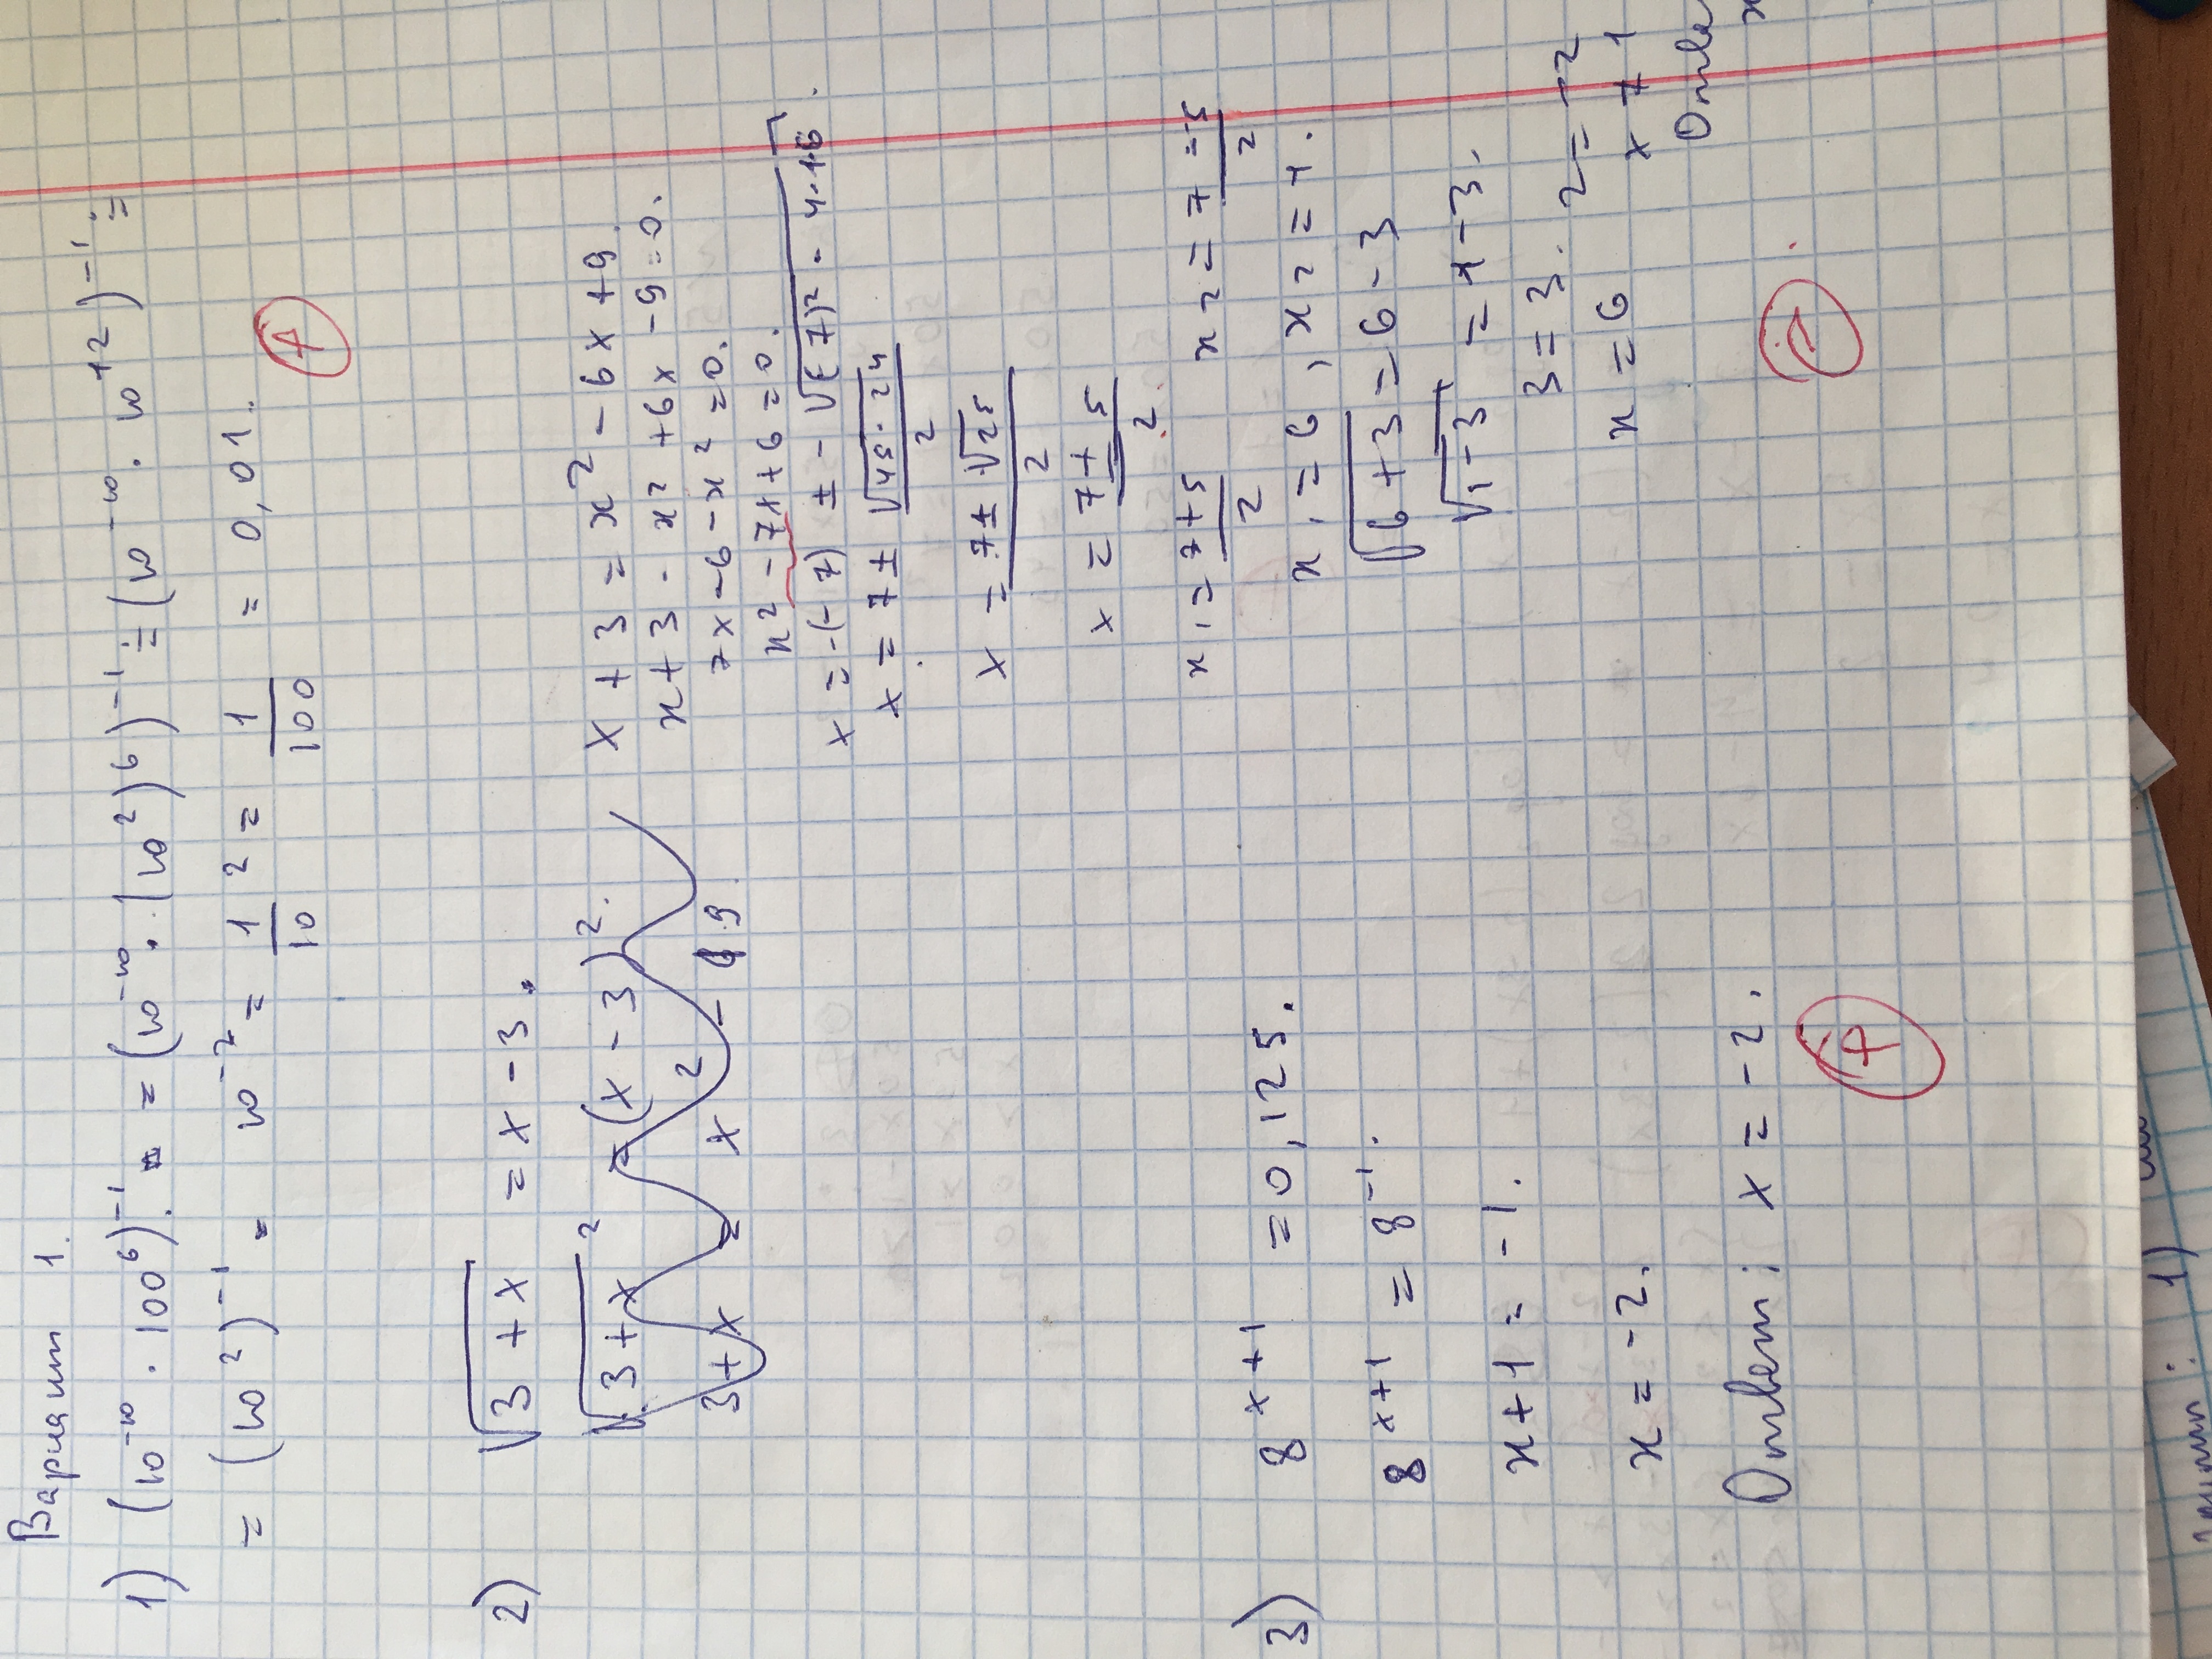 Вариант 1.
1) (10⁻¹⁰ · 100⁶)⁻¹ = (10⁻¹⁰ · (10²)⁶)⁻¹ = (10⁻¹⁰ · 10⁺¹²)⁻¹ =
= (10²)⁻¹ = 10⁻² = 1/10 ² = 1/100 = 0,01.
+
2) √(3 + x) = x - 3.
√(3 + x)² = (x - 3)².
3 + x = x² - 9
x + 3 = x² - 6x + 9.
x + 3 - x² + 6x - 9 = 0.
7x - 6 - x² = 0.
x² - 7x + 6 = 0.
x = -(-7) ± - √((-7)² - 4·1·6).
x = 7 ± √(45 - 24)/2
x = (7 ± √25)/2
x = (7 ± 5)/2
x₁ = (7 + 5)/2 x₂ = (7 - 5)/2
x₁ = 6, x₂ = 1.
√(6 + 3) = 6 - 3
√(1 - 3) = 1 - 3.
3 = 3. 2 = -2
x = 6 x ≠ 1
3) 8ˣ⁺¹ = 0,125.
8ˣ⁺¹ = 8⁻¹.
x + 1 = -1.
x = -2.
Ответ: x = -2.
+
1)